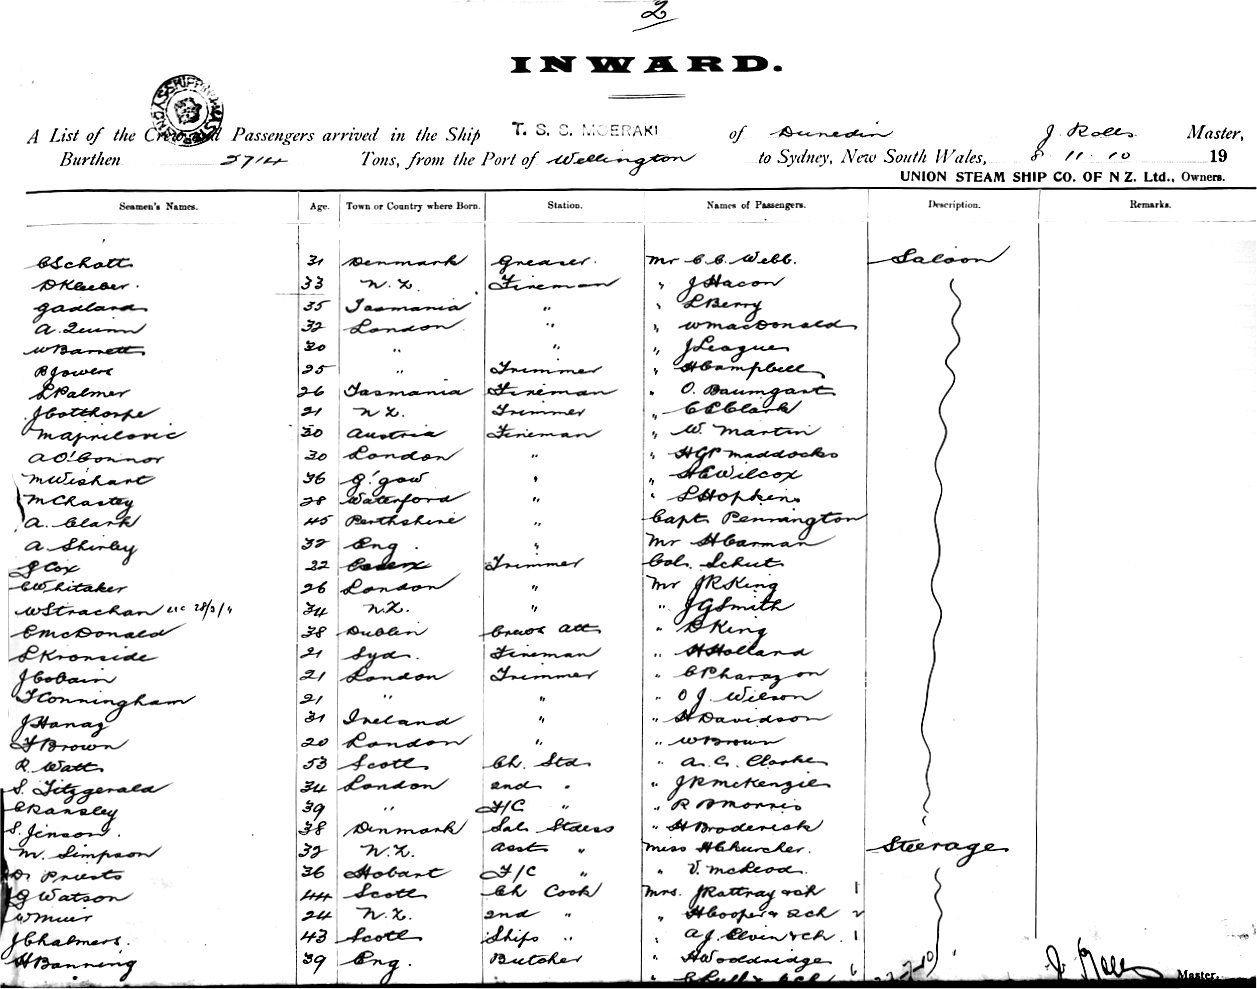 2
INWARD.
A List of the Crew and Passengers arrived in the Ship T. S. S. MOERAKI of Dunedin J. Rolls Master,
Burthen 2714 Tons, from the Port of Wellington to Sydney, New South Wales, 8 11 10 19
UNION STEAM SHIP CO. OF N Z. Ltd., Owners.
Seamen's Names. Age. Town or Country where Born. Station. Names of Passengers. Description. Remarks.
C Schott 31 Denmark Greaser. Mr C. C. Webb. Saloon
D Kleeber. 33 N. Z. Fireman " J Hacon
35 Tasmania " " L Berry
A. Quinn 32 London " " W MacDonald
W Barrett 30 " " " J League
B Jowers 25 " Trimmer " H Campbell
L Palmer 26 Tasmania Fireman " O. Baumgart
J Cotthorpe 21 N Z. Trimmer " C E Clark
M Aprilovic 30 Austria Fireman " W. Martin
A O'Connor 30 London " " H G P Maddocks
M Wishart 36 G'gow " " H E Wilcox
M Chastey 28 Waterford " " L Hopkins
A. Clark 45 Perthshire " Capt Pennington
A Shirley 32 Eng. " Mr H Carman
J Cox 22 Essex Trimmer Col. Schut
C Whitaker 26 London " Mr J R King
W Strachan 28/3/11 34 N.Z. " " J G Smith
C McDonald 38 Dublin Crews Att " D King
L Kronside 21 Syd. Fireman " H Holland
J Cobain 21 London Trimmer " C Pharazon
T Conningham 21 " " " O J. Wilson
J Hanaz 31 Ireland " " H Davidson
F Brown 20 London " " W Brown
R. Watt 53 Scott Ch. Std " A. G. Clarke
S. Fitzgerald 34 London 2nd " " J R McKenzie
C Ransley 39 " F/C " " R B Morris
S. Jenson. 38 Denmark Sal. Stdess " H Broderick
M. Simpson 32 N.Z. Asst " Miss H Churcher. Steerage
D. Priests 36 Hobart F/C " " V. McLeod.
G Watson 44 Scott Ch Cook Mrs. J Rattray & ch 1
W Muir 24 N.Z. 2nd " " H Cooper & 2 ch 2
J Chalmers. 43 Scott Ships " " A J. Elvin & ch. 1
H Banning 39 Eng. Butcher " H Wooldridge
J. Rolls Master.